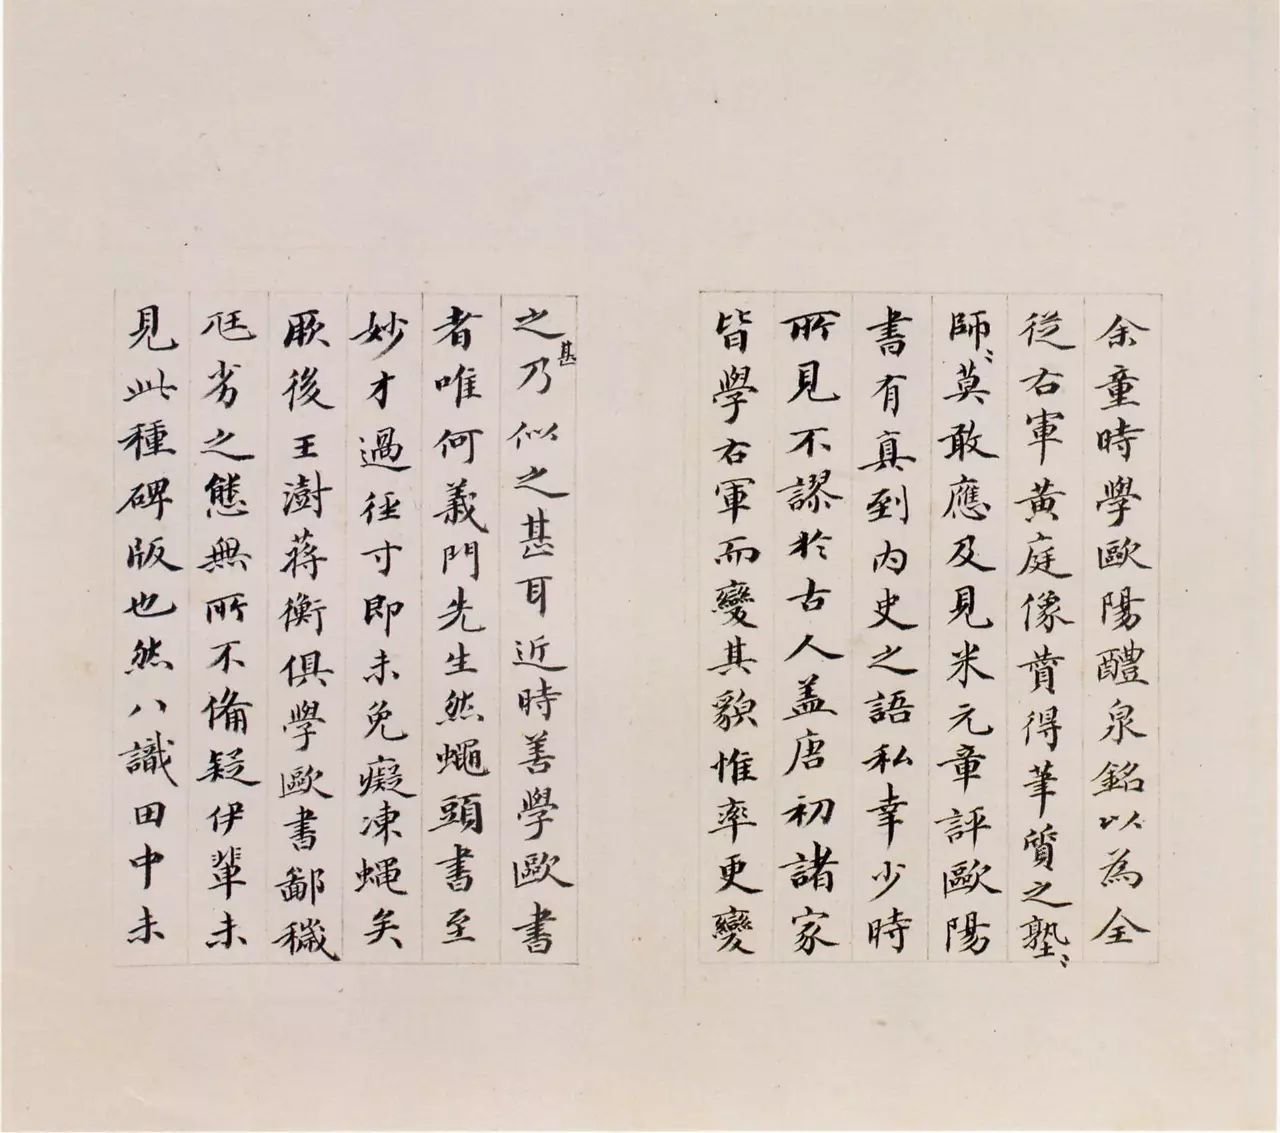 余童時學歐陽醴泉銘以為全
從右軍黃庭像賛得筆質之塾〻
師〻莫敢應及見米元章評歐陽
書有真到內史之語私幸少時
所見不謬於古人盖唐初諸家
皆學右軍而變其貌惟率更變
之甚乃似之甚耳近時善學歐書
者唯何義門先生然蠅頭書至
妙才過徑寸即未免癡凍蠅矣
厥後王澍蔣衡俱學歐書鄙穢
尩劣之態無所不備疑伊輩未
見此種碑版也然八識田中未